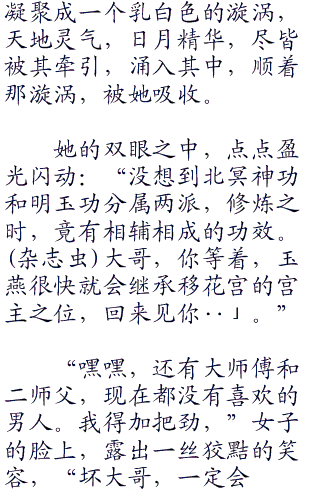 凝聚成一个乳白色的漩涡，
天地灵气，日月精华，尽皆
被其牵引，涌入其中，顺着
那漩涡，被她吸收。
她的双眼之中，点点盈
光闪动：“没想到北冥神功
和明玉功分属两派，修炼之
时，竟有相辅相成的功效。
(杂志虫)大哥，你等着，玉
燕很快就会继承移花宫的宫
主之位，回来见你··」。”
“嘿嘿，还有大师傅和
二师父，现在都没有喜欢的
男人。我得加把劲，”女子
的脸上，露出一丝狡黠的笑
容，“坏大哥，一定会